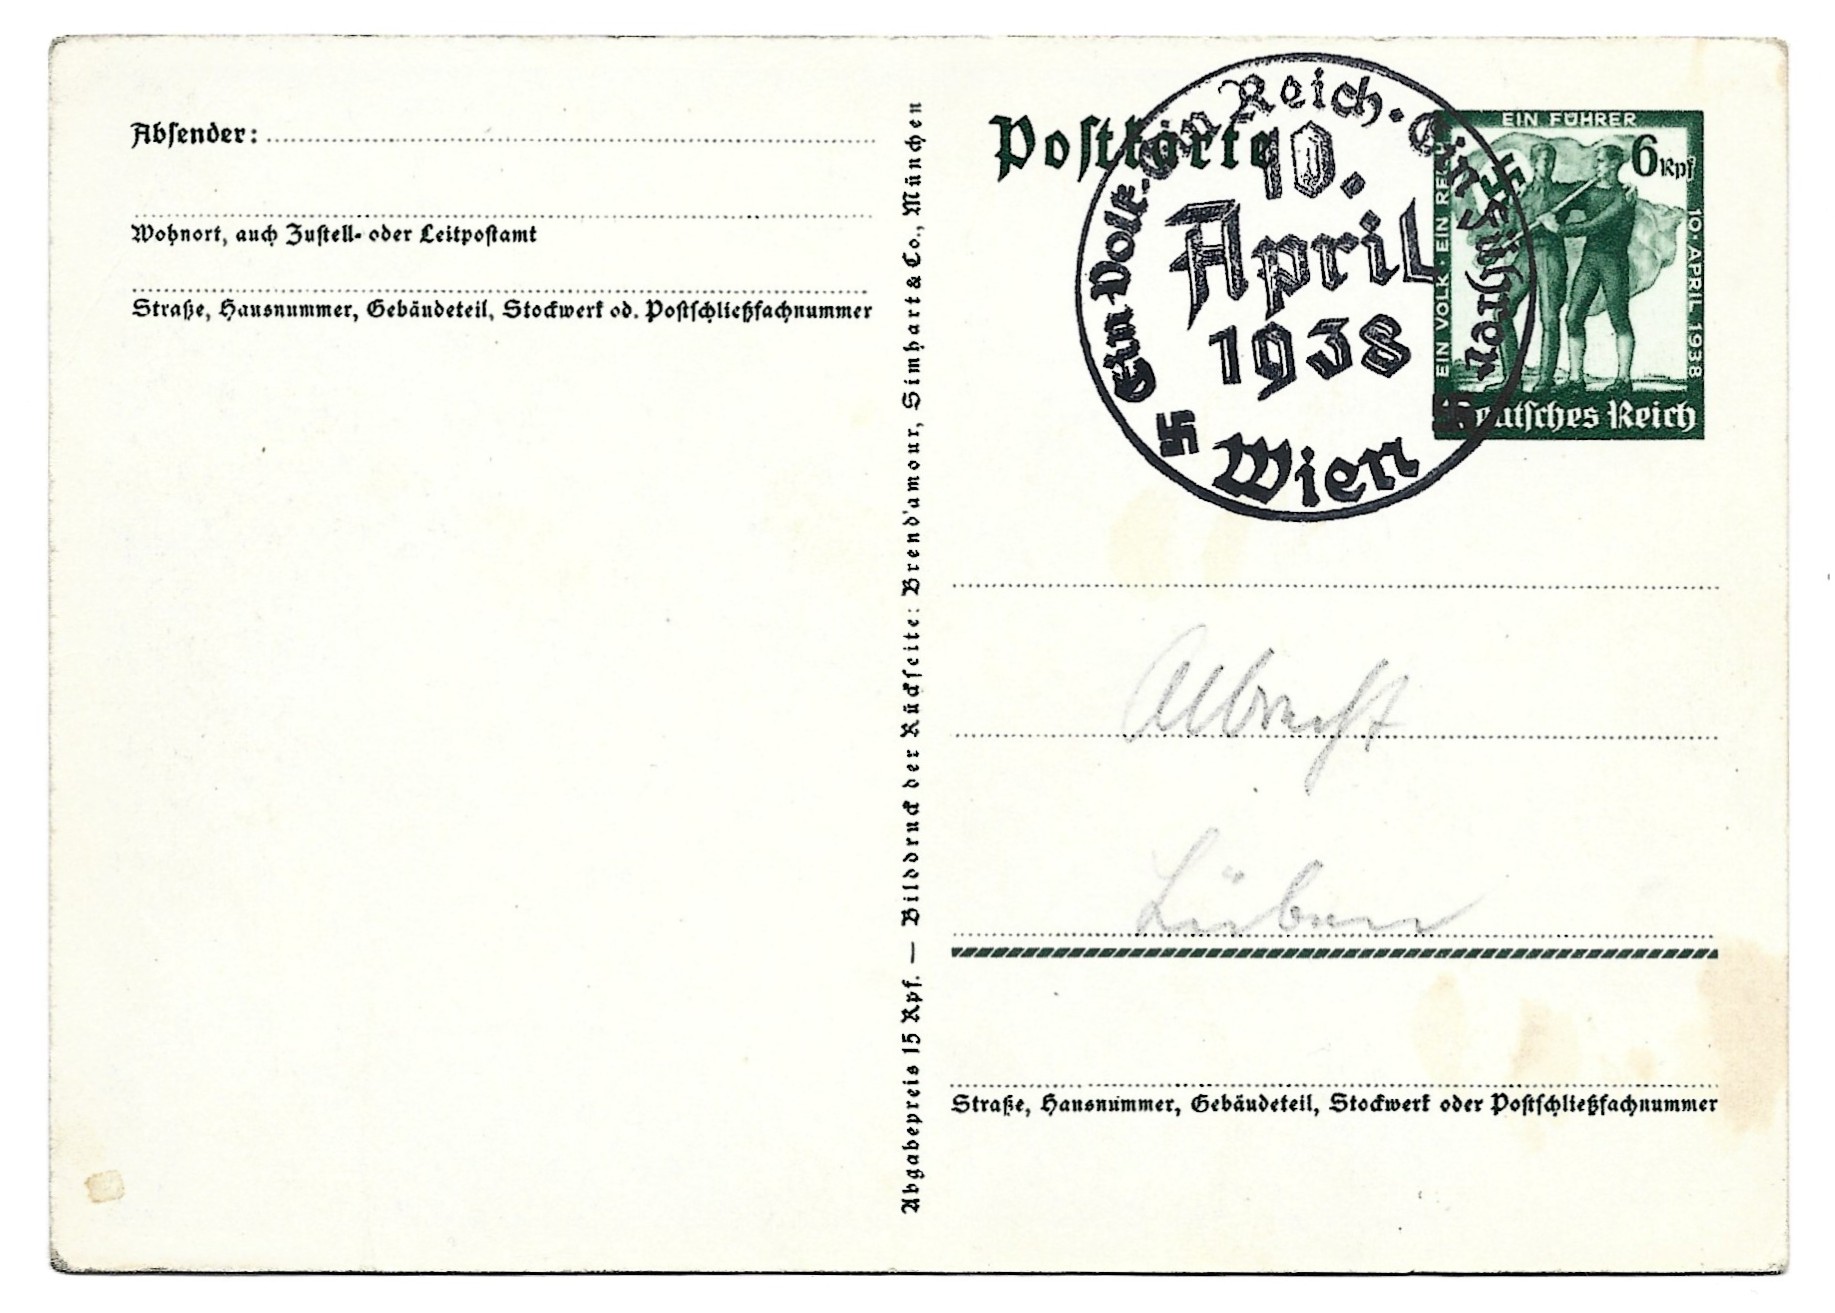 Absender:
Wohnort, auch Zustell- oder Leitpostamt
Straße, Hausnummer, Gebäudeteil, Stockwerk od. Postschließfachnummer
Abgabepreis 15 Rpf. — Bilddruck der Rückseite: Brend'amour, Simhart & Co., München
Postkarte
Ein Volk · Ein Reich · Ein Führer.
10.
April
1938
Wien
EIN VOLK · EIN REICH
EIN FÜHRER
10. APRIL 1938
6 Rpf
Deutsches Reich
Albrecht
Lüben
Straße, Hausnummer, Gebäudeteil, Stockwerk oder Postschließfachnummer